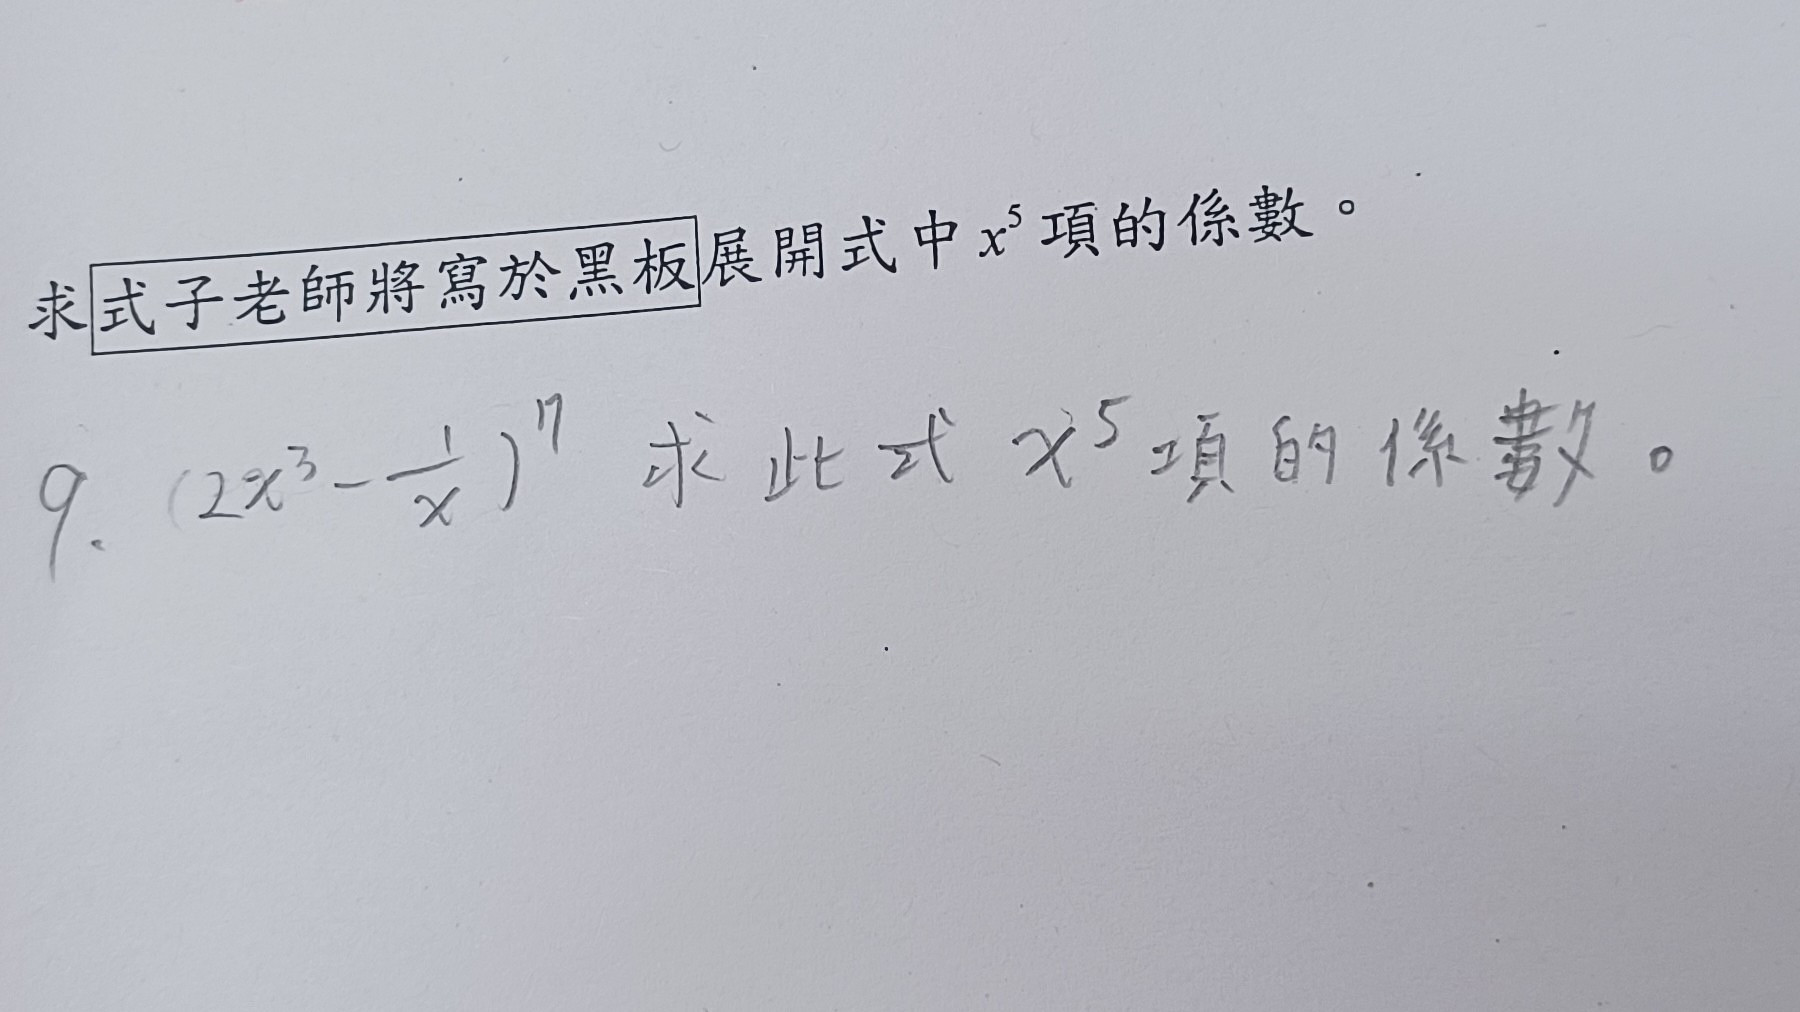 求式子老師將寫於黑板展開式中x⁵項的係數。
9. (2x³-1/x)⁷ 求此式 x⁵項的係數。